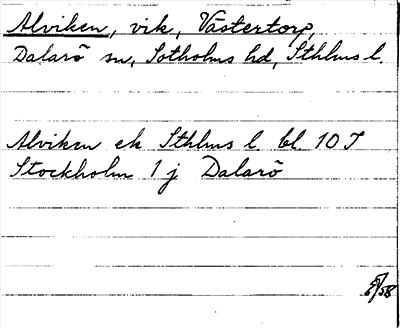 Alviken, vik, Västertorp,
Dalarö sn, Sotholms hd, Sthlms l.
Alviken ek Sthlms l bl. 10 J
Stockholm 1 j Dalarö